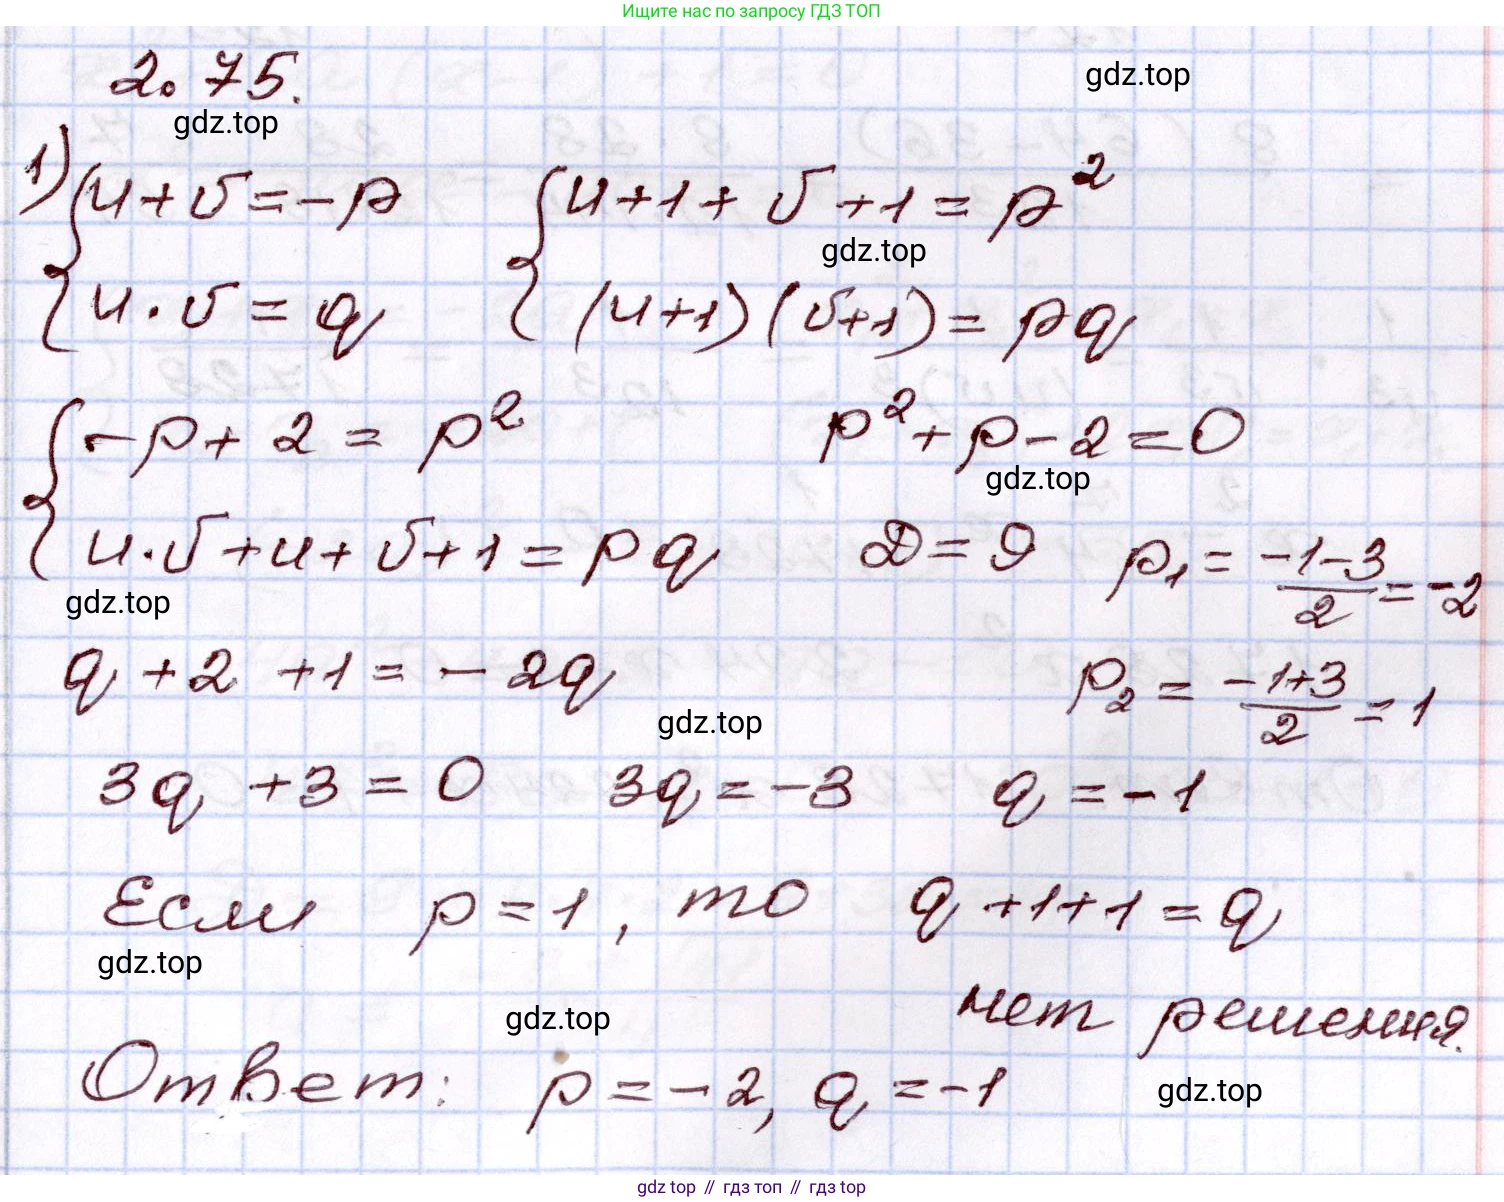 Ищите нас по запросу ГДЗ ТОП
2.75.
gdz.top
gdz.top
1) { u + v = -p    { u + 1 + v + 1 = p²
gdz.top
u · v = q    (u+1)(v+1) = pq
{ -p + 2 = p²    p² + p - 2 = 0
gdz.top
u·v + u + v + 1 = pq    D = 9    p₁ = (-1-3)/2 = -2
gdz.top
q + 2 + 1 = -2q    p₂ = (-1+3)/2 = 1
gdz.top
3q + 3 = 0    3q = -3    q = -1
Если p = 1, то q + 1 + 1 = q
gdz.top
нет решения.
gdz.top
Ответ: p = -2, q = -1
gdz.top
gdz top // гдз топ // гдз top